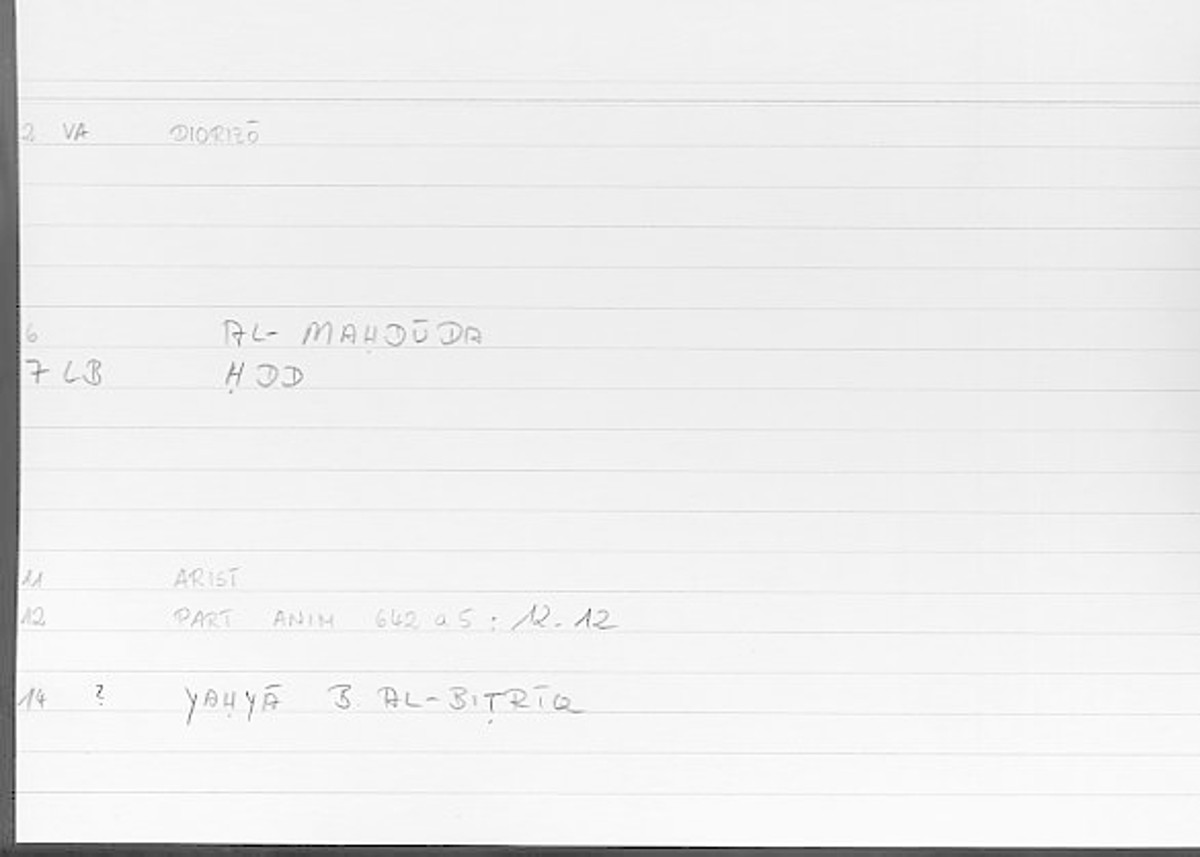 2 VA DIORIZŌ
6 AL- MAḤDŪDA
7 LB ḤDD
11 ARIST
12 PART ANIM 642 a 5 : 12.12
14 ? YAḤYĀ B AL-BIṬRĪQ